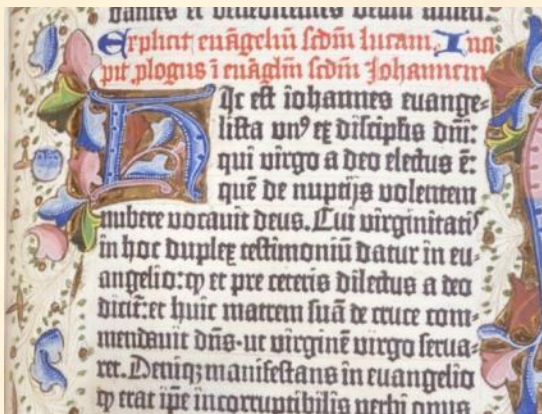 dantes et benedicentes deum amen.
Explicit euãgeliũ scdm̃ lucam. Inci
pit ꝓlogus ĩ euãglm̃ scdm̃ Johannem
Hic est iohannes euange⸗
lista vnꝰ ex discipĺis dnĩ:
qui virgo a deo electus ẽ:
quẽ de nuptijs volentem
nubere vocauit deus. Cui virginitatꝭ
in hoc duplex testimoniũ datur in eu⸗
angelio: ꝙ et pre ceteris dilectus a deo
dicit̃: et huic matrem suã de cruce com⸗
mendauit dñs. ut virginẽ virgo serua⸗
ret. Deniqꝫ manifestans in euangelio
ꝙ erat ip̃e incorruptibilis verbi opus